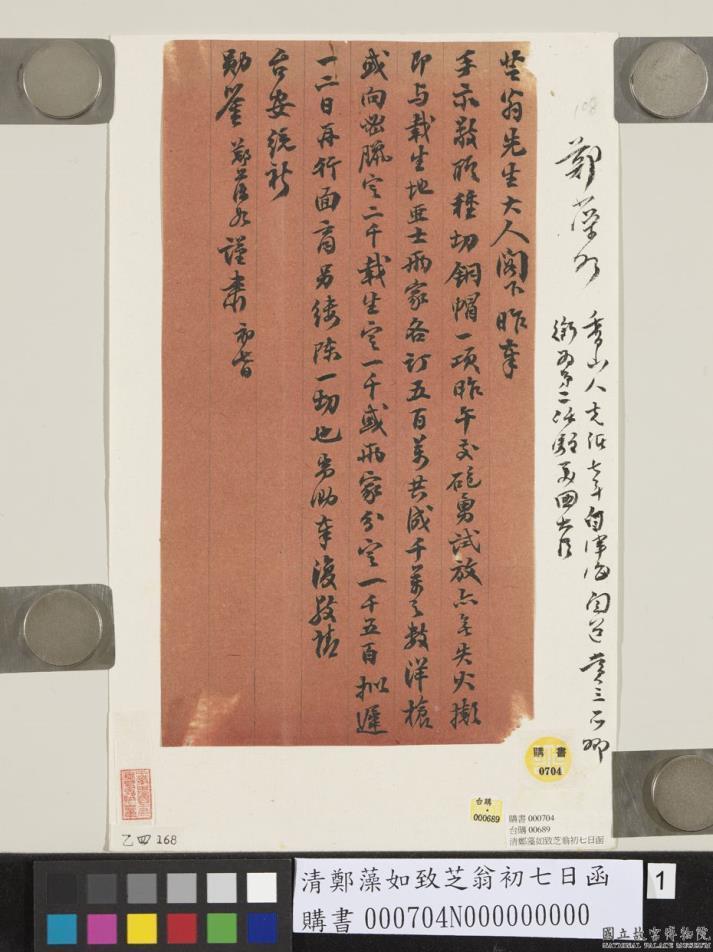 鄭藻如
香山人光緒七年自津海關道賞三品卿
銜為第二次駐美國大臣
芝翁先生大人閣下昨奉
手示敬頌種切銅帽一項昨午交砲勇試放亦無失火擬
即与載生地亜士兩家各訂五百萬共成千萬之數洋槍
或向 臘定二千載生定一千或兩家分定一千五百擬遲
一二日再行面商另縷陳一切也專泐奉復敬請
台安統祈
勛鑒 鄭藻如謹肅 初七日
108
購書
0704
台購
000689
購書 000704
台購 00689
清鄭藻如致芝翁初七日函
乙四 168
清鄭藻如致芝翁初七日函
購書 000704N000000000
1
國立故宮博物院
NATIONAL PALACE MUSEUM